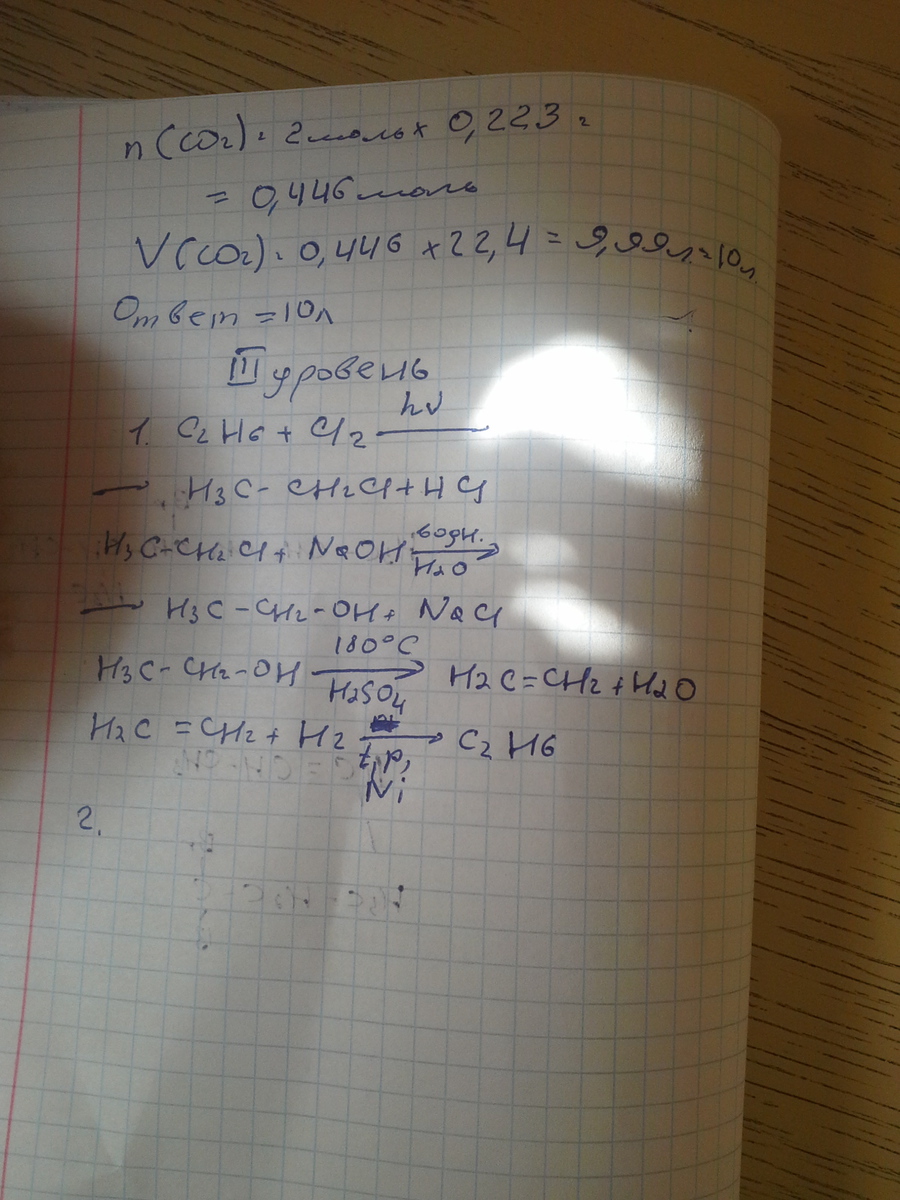 n(CO2) = 2моль x 0,223 =
= 0,446 моль
V(CO2) = 0,446 x 22,4 = 9,99л = 10л
Ответ = 10л
III уровень
1. C2H6 + Cl2 hν
H3C - CH2Cl + HCl
H3C-CH2Cl + NaOH водн. H2O
H3C - CH2 - OH + NaCl
H3C - CH2 - OH 180°C H2SO4 H2C = CH2 + H2O
H2C = CH2 + H2 t, p, Ni C2H6
2.